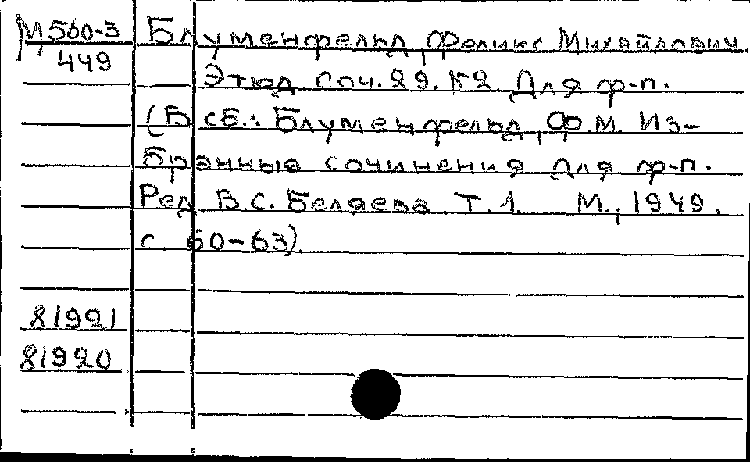 М560-3 Блуменфельд, Феликс Михайлович.
449 Этюд. Соч. 29. №2. Для ф-п.
(В сб.: Блуменфельд, Ф.М. Из-
бранные сочинения для ф-п.
Ред. В.С. Беляева. Т.1. М., 1949.
с. 60-63).
81991
81920